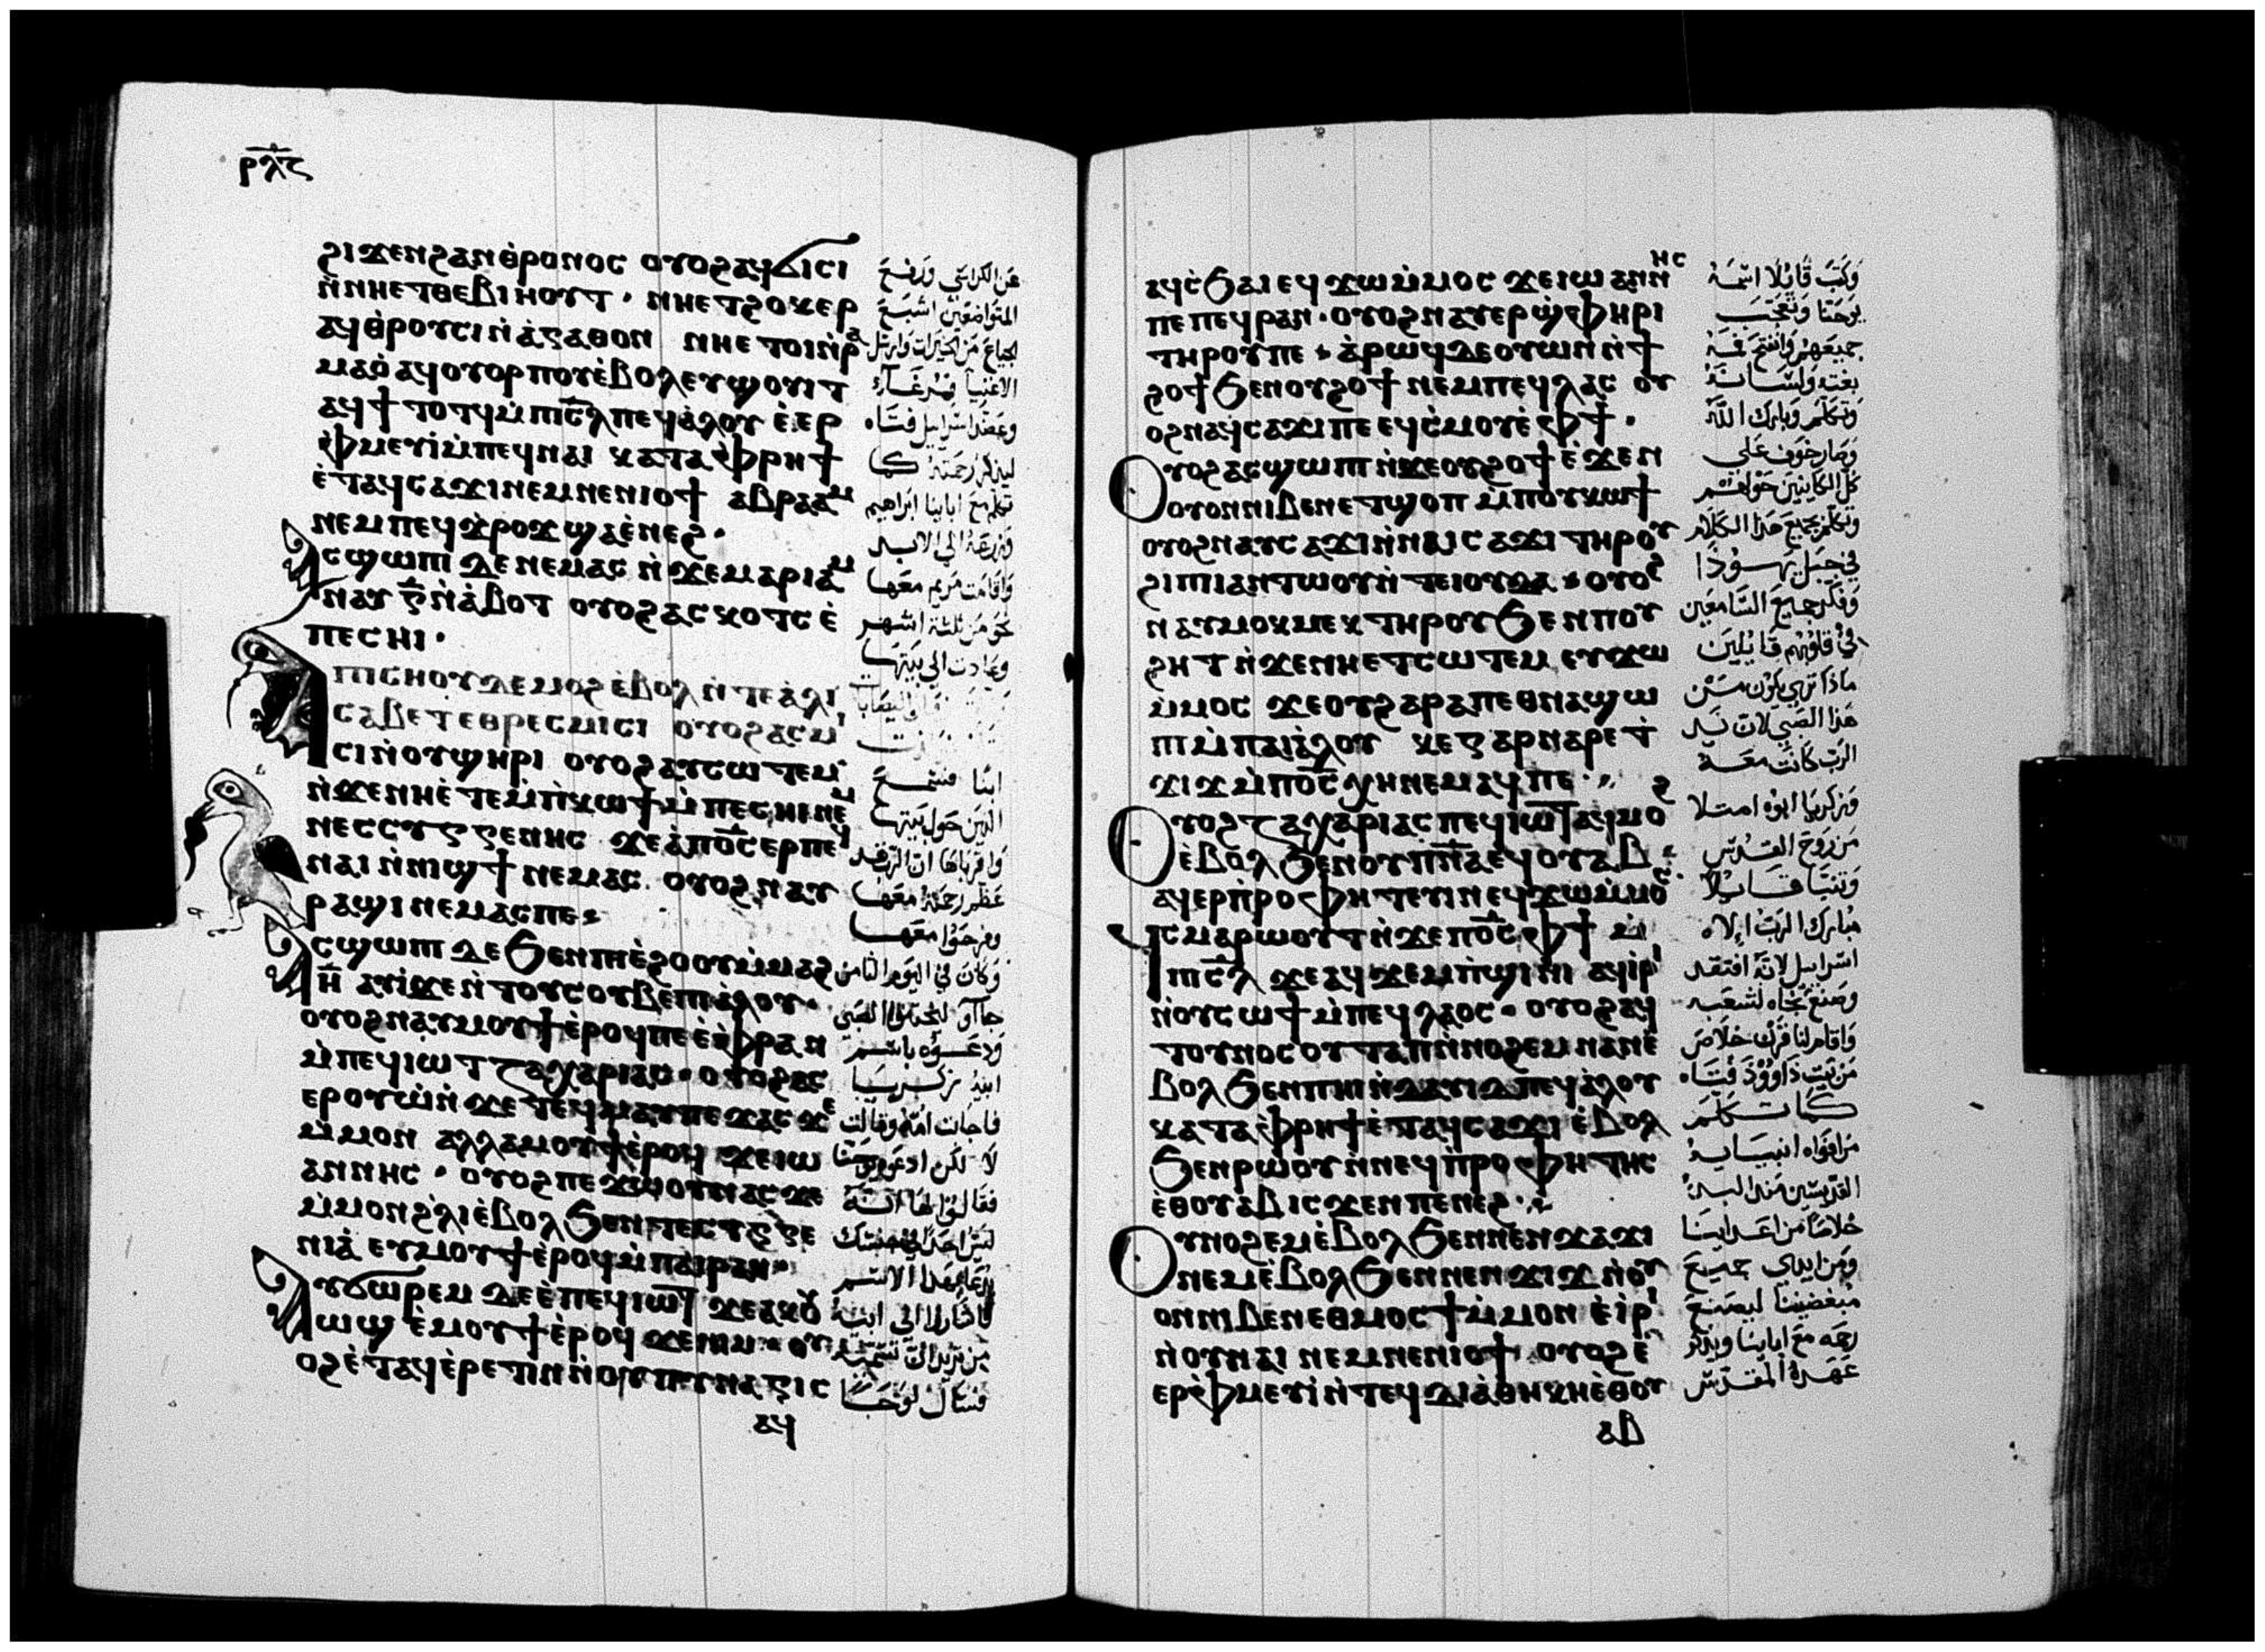 ⲣⲗⲋ
ϩⲓϫⲉⲛϩⲁⲛⲑⲣⲟⲛⲟⲥ ⲟⲩⲟϩⲁϥϭⲓⲥⲓ
ⲛ̀ⲛⲏⲉⲧⲑⲉⲃⲓⲏⲟⲩⲧ · ⲛⲏⲉⲧϩⲟⲕⲉⲣ
ⲁϥⲑⲣⲟⲩⲥⲓⲛ̀ⲁ̀ⲅⲁⲑⲟⲛ ⲛⲏⲉⲧⲟⲓⲛ̀ⲣⲁ
ⲙⲁⲟ̀ ⲁϥⲟⲩⲟⲣⲡⲟⲩⲉ̀ⲃⲟⲗⲉⲩϣⲟⲩⲓⲧ
ⲁϥϯⲧⲟⲧϥⲙ̀ⲡⲓⲥ̅ⲗ ⲡⲉϥⲁ̀ⲗⲟⲩ ⲉ̀ⲉⲣ
ⲫ̀ⲙⲉⲩⲓ̀ⲙ̀ⲡⲉϥⲛⲁⲓ ⲕⲁⲧⲁⲫ̀ⲣⲏϯ
ⲉ̀ⲧⲁϥⲥⲁϫⲓⲛⲉⲙⲛⲉⲛⲓⲟϯ ⲁⲃⲣⲁⲁⲙ
ⲛⲉⲙⲡⲉϥϫ̀ⲣⲟϫϣⲁⲉ̀ⲛⲉϩ ·
ⲁⲥϣⲱⲡⲓ ⲇⲉⲛⲉⲙⲁⲥ ⲛ̀ϫⲉⲙⲁⲣⲓⲁⲙ
ⲛⲁⲩ ⲅ̅ⲛ̀ⲁ̀ⲃⲟⲧ ⲟⲩⲟϩⲁⲥⲕⲟⲧⲥ ⲉ̀
ⲡⲉⲥⲏⲓ ·
ⲡⲓⲥⲏⲟⲩⲇⲉⲙⲟϩⲉ̀ⲃⲟⲗ ⲛ̀ⲧⲉⲁ̀ⲗⲓ
ⲥⲁⲃⲉⲧⲉⲑⲣⲉⲥⲙⲓⲥⲓ ⲟⲩⲟϩⲁⲥⲙⲓ
ⲥⲓⲛ̀ⲟⲩϣⲏⲣⲓ ⲟⲩⲟϩⲁⲩⲥⲱⲧⲉⲙ
ⲛ̀ϫⲉⲛⲏⲉ̀ⲧⲉⲙ̀ⲡ̀ⲕⲱϯ ⲙ̀ⲡⲉⲥⲏⲓⲛⲉⲙ
ⲛⲉⲥⲥⲩⲅⲅⲉⲛⲏⲥ ϫⲉⲁ̀ⲡⲟ̅ⲥ ⲉⲣⲡⲉϥ
ⲛⲁⲓ ⲛ̀ⲛⲓϣϯ ⲛⲉⲙⲁⲥ ⲟⲩⲟϩⲛⲁⲩ
ⲣⲁϣⲓⲛⲉⲙⲁⲥⲡⲉ·
ⲁⲥϣⲱⲡⲓ ⲇⲉϧⲉⲛⲡⲓⲉ̀ϩⲟⲟⲩⲙ̀ⲙⲁϩ
ⲏ̅ ⲁⲩⲓ̀ϫⲉⲛ̀ⲧⲟⲩⲥⲟⲩⲃⲉⲡⲓⲁ̀ⲗⲟⲩ·
ⲟⲩⲟϩⲛⲁⲩⲙⲟⲩϯⲉ̀ⲣⲟϥⲡⲉⲉ̀ⲫ̀ⲣⲁⲛ
ⲙ̀ⲡⲉϥⲓⲱⲧ ⲍⲁⲭⲁⲣⲓⲁⲥ · ⲟⲩⲟϩⲁⲥ
ⲉⲣⲟⲩⲱ̀ⲛ̀ϫⲉⲧⲉϥⲙⲁⲩⲡⲉϫⲁⲥϫⲉ
ⲙ̀ⲙⲟⲛ ⲁⲗⲗⲁⲙⲟⲩϯⲉ̀ⲣⲟϥ ϫⲉⲓⲱ
ⲁⲛⲛⲏⲥ · ⲟⲩⲟϩⲡⲉϫⲱⲟⲩⲛⲁⲥϫⲉ
ⲙ̀ⲙⲟⲛϩ̀ⲗⲓⲉ̀ⲃⲟⲗ ϧⲉⲛⲧⲉⲥⲩⲅⲅⲉ
ⲛⲓⲁ̀ ⲉⲩⲙⲟⲩϯⲉ̀ⲣⲟϥⲙ̀ⲡⲁⲓⲣⲁⲛ·
ⲁⲩϭⲱⲣⲉⲙ ⲇⲉⲉ̀ⲡⲉϥⲓⲱⲧ ϫⲉⲁⲕⲟⲩ
ⲱϣ ⲉ̀ⲙⲟⲩϯⲉ̀ⲣⲟϥ ϫⲉⲛⲓⲙ · ⲟⲩ
ⲟϩⲉ̀ⲧⲁϥⲉ̀ⲣⲉⲧⲓⲛ ⲛ̀ⲟⲩⲡⲓⲛⲁⲅⲓⲥ
ⲁϥ
عن الكراسي ورفع
المتواضعين اشبع
الجياع من الخيرات وارسل
الاغنيا فرغا
وعضد اسرائيل فتاه
ليذكر رحمته كما
تكلم مع ابائنا ابراهيم
وزرعه الى الابد
واقامت مريم معها
نحو من ثلثة اشهر
وعادت الى بيتها
ابنا فسمع
الذين حول بيتها
واقرباها ان الرب قد
عظم رحمته معها
وفرحوا معها
وكان في اليوم الثامن
جاآو ليختنوا الصبي
ودعوه باسم
ابيه زكريا
فاجابت امه وقالت
لا لكن ادعوه يوحنا
فقالوا لها انه
ليس احد في جنسك
يدعا بهذا الاسم
فاشاروا الى ابيه
من تريد ان تسميه
فسال لوحا
ⲁϥⲥ̀ϧⲁⲓ ⲉϥϫⲱⲙ̀ⲙⲟⲥ ϫⲉⲓⲱⲁⲛⲛⲏⲥ
ⲡⲉⲡⲉϥⲣⲁⲛ · ⲟⲩⲟϩⲛⲁⲩⲉⲣϣ̀ⲫⲏⲣⲓ
ⲧⲏⲣⲟⲩⲡⲉ · ⲁ̀ⲣⲱϥⲇⲉⲟⲩⲱⲛ ⲛ̀ϯ
ϩⲟϯϧⲉⲛⲟⲩϩⲟϯ ⲛⲉⲙⲡⲉϥⲗⲁⲥ ⲟⲩ
ⲟϩⲛⲁϥⲥⲁϫⲓⲡⲉ ⲉϥⲥ̀ⲙⲟⲩⲉ̀ⲫϯ·
ⲟⲩⲟϩⲁⲥϣⲱⲡⲓ ⲛ̀ϫⲉⲟⲩϩⲟϯⲉ̀ϫⲉⲛ
ⲟⲩⲟⲛⲛⲓⲃⲉⲛⲉⲧϣⲟⲡ ⲙ̀ⲡⲟⲩⲕⲱϯ
ⲟⲩⲟϩⲛⲁⲩⲥⲁϫⲓⲛ̀ⲛⲁⲓⲥⲁϫⲓ ⲧⲏⲣⲟⲩ
ϩⲓⲡⲓⲁⲛⲧⲱⲟⲩⲛ̀ⲧⲉⲓⲟⲩⲇⲁ · ⲟⲩⲟϩ
ⲛⲁⲩⲙⲟⲕⲙⲉⲕ ⲧⲏⲣⲟⲩ ϧⲉⲛⲡⲟⲩ
ϩⲏⲧ ⲛ̀ϫⲉⲛⲏⲉⲧⲥⲱⲧⲉⲙ ⲉⲩϫⲱ
ⲙ̀ⲙⲟⲥ ϫⲉⲟⲩϩⲁⲣⲁⲡⲉⲑⲛⲁϣⲱ
ⲡⲓⲙ̀ⲡⲁⲓⲁ̀ⲗⲟⲩ ⲕⲉⲅⲁⲣⲛⲁⲣⲉϯ
ϫⲓϫⲙ̀ⲡⲟ̅ⲥ ⲭⲏⲛⲉⲙⲁϥⲡⲉ·
ⲟⲩⲟϩ ⲍⲁⲭⲁⲣⲓⲁⲥ ⲡⲉϥⲓⲱⲧ ⲁϥⲙⲟϩ
ⲉ̀ⲃⲟⲗ ϧⲉⲛⲟⲩⲡ̅ⲛ̅ⲁ̅ ⲉϥⲟⲩⲁⲃ
ⲁϥⲉⲣⲡ̀ⲣⲟⲫⲏⲧⲉⲩⲓⲛ ⲉϥϫⲱⲙ̀ⲙⲟⲥ
ϥⲥⲙⲁⲣⲱⲟⲩⲧ ⲛ̀ϫⲉⲡⲟ̅ⲥ ⲫϯ ⲙ̀
ⲡⲓⲥ̅ⲗ ϫⲉⲁϥϫⲉⲙⲡ̀ϣⲓⲛⲓ ⲁϥⲓ̀ⲣⲓ
ⲛ̀ⲟⲩⲥⲱϯ ⲙ̀ⲡⲉϥⲗⲁⲟⲥ · ⲟⲩⲟϩⲁϥ
ⲧⲟⲩⲛⲟⲥ ⲟⲩⲧⲁⲡ ⲛ̀ⲛⲟϩⲉⲙ ⲛⲁⲛⲉ̀
ⲃⲟⲗ ϧⲉⲛⲡⲏⲓ ⲛ̀ⲇⲁⲩⲓⲇ ⲡⲉϥⲁ̀ⲗⲟⲩ
ⲕⲁⲧⲁⲫ̀ⲣⲏϯⲉ̀ⲧⲁϥⲥⲁϫⲓ ⲉ̀ⲃⲟⲗ
ϧⲉⲛⲣⲱⲟⲩ ⲛ̀ⲛⲉϥⲡ̀ⲣⲟⲫⲏⲧⲏⲥ
ⲉ̀ⲑⲟⲩⲁⲃ ⲓⲥϫⲉⲛⲡⲉⲛⲉϩ·
ⲟⲩⲛⲟϩⲉⲙⲉ̀ⲃⲟⲗ ϧⲉⲛⲛⲉⲛϫⲁϫⲓ
ⲛⲉⲙⲉ̀ⲃⲟⲗ ϧⲉⲛⲛⲉⲛϫⲓϫ ⲛ̀ⲟⲩ
ⲟⲛⲛⲓⲃⲉⲛⲉⲑⲙⲟⲥϯⲙ̀ⲙⲟⲛ ⲉ̀ⲓ̀ⲣⲓ
ⲛ̀ⲟⲩⲛⲁⲓ ⲛⲉⲙⲛⲉⲛⲓⲟϯ ⲟⲩⲟϩⲉ̀
ⲉⲣⲫ̀ⲙⲉⲩⲓ̀ⲛ̀ⲧⲉϥⲇⲓⲁ̀ⲑⲏⲕⲏⲉ̀ⲑⲟⲩ
ⲁⲃ
وكتب قايلا اسمه
يوحنا وتعجب
جميعهم وانفتح فمه
بغتة ولسانه
وتكلم وبارك الله
وصار خوف على
كل الكاينين حولهم
وتكلم بجميع هذا الكلام
في جبل يهوذا
وفكر جميع السامعين
في قلوبهم قايلين
ماذا ترى يكون من
هذا الصبي لان يد
الرب كانت معه
وزكريا ابوه امتلا
من روح القدس
وتنبا قايلا
مبارك الرب اله
اسراييل لانه افتقد
وصنع نجاه لشعبه
واقام لنا قرن خلاص
من بيت داوود فتاه
كما تكلم
من افواه انبيايه
القديسين منذ البد
خلاصا من اعداينا
ومن ايدي جميع
مبغضينا ليصنع
رحمه مع اباينا ويذكر
عهده المقدس